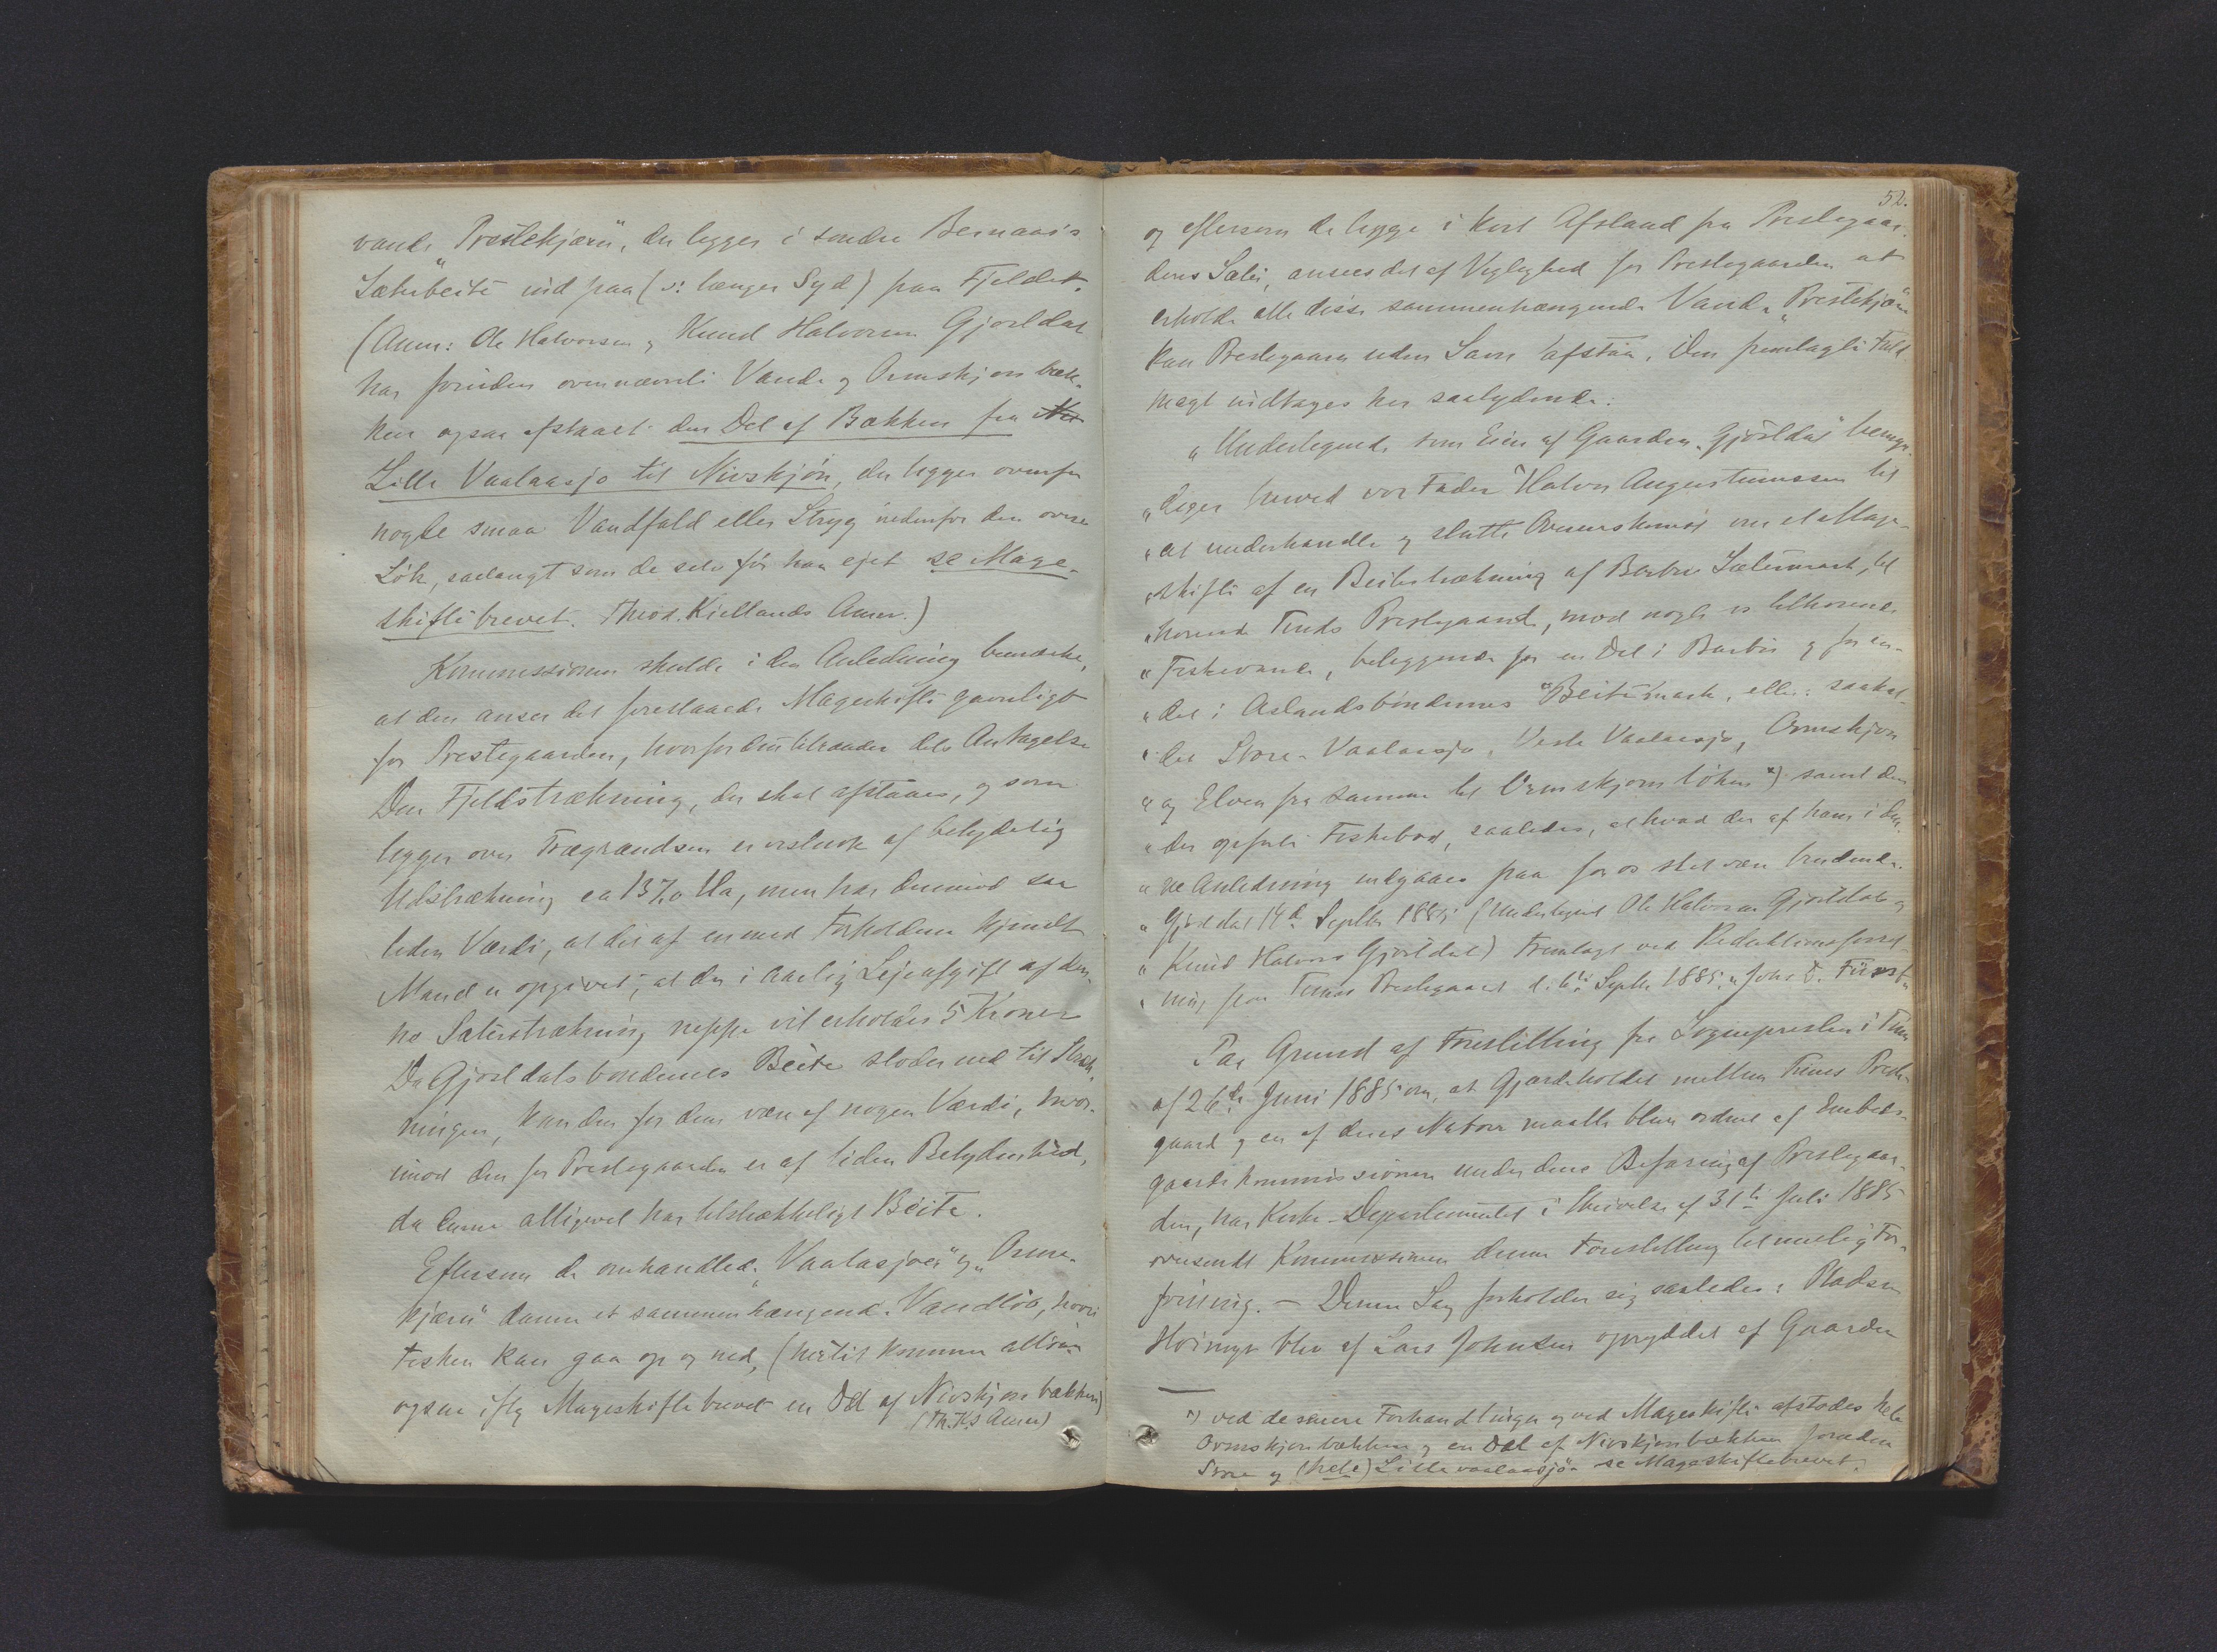 vande "Prestekjærn", der ligger i søndre Bernaas's
Sæterbeite ind paa (ɔ: længer Syd) paa Fjeldet.
(Anm: Ole Halvorsen og Knud Halvorsen Gjøsldal
har foruden ovennævnte Vande og Ormskjønbæk-
ken ogsaa afstaaet den Del af Bækken fra
Lille Vaalaasjø til Nivskjøn, der ligger ovenfor
nogle smaa Vandfald eller Stryg nedenfor den øvre
Løk, saalangt som de selv før har ejet se Mage-
skiftebrevet. Theod. Kiellands Anm.)
Kommissionen skulde i den Anledning bemærke,
at den anser det foreslaaede Mageskifte gavnligt
for Prestegaarden, hvorfor den tilraader dets Antagelse
Den Fjeldstrækning, der skal afstaaes, og som
ligger over Trægrændsen er vistnok af betydelig
Udstrækning ca 1370 Ha, men har derimod saa
liden Værdi, at det af en med Forholdene kjendt
Mand er opgivet, at der i aarlig Lejeafgift af den-
ne Sæterstrækning neppe vil erholdes 5 Kroner
Da Gjøsldalsbøndernes Beite støder ned til Stræk-
ningen, kan den for dem være af nogen Værdi, hvor-
imod den for Prestegaarden er af liden Betydenhed,
da denne alligevel har tilstrækkeligt Beite.
Eftersom de omhandlede "Vaalasjøer" og "Orms-
kjærn" danne et sammenhængende Vandløb, hvori
Fisken kan gaa op og ned, (hertil kommer altsaa
ogsaa iflg Mageskiftebrevet en Del af Nivskjønbækken)
(Th. Ks Anm)
52.
og eftersom de ligge i kort Afstand fra Prestegaar-
dens Sæter, ansees det af Vigtighed for Prestegaarden at
erholde alle disse sammenhængende Vande. "Prestekjærn"
kan Prestegaarden uden Savn afstaa. Den fremlagte Fuld-
magt indtages her saalydende:
"Undertegnede som Eier af Gaarden "Gjøsldal" bemyn-
"diger herved vor Fader Halvor Augustinussen til
"at underhandle og slutte Overenskomst om et Mage-
"skifte af en Beitestrækning af Børbu Sætermark, til-
"hørende Tinds Prestegaard, mod nogle os tilhørende
"Fiskevande, beliggende for en Del i Børbu og for en
"del i Aslandsbøndernes Beitemark, eller: saakal-
"det Store-Vaalaasjø, Vesle Vaalaasjø, Ormskjøn
"og Elven fra samme til Ormskjønløken *) samt den
"der opførte Fiskebod, saaledes, at hvad der af ham i den-
"ne Anledning indgaaes paa for os skal være bindende.
"Gjøsldal 14de Septbr 1885 (Undertegnet Ole Halvorsen Gjøsldal og
"Knud Halvors Gjøsldal) Fremlagt ved Reduktionsforret-
"ning paa Tinds Prestegaard d. Septbr 1885.
Paa Grund af Forestilling fra Sognepresten i Tinn
af 26de Juni 1885 om, at Gjærdeholdet mellem Tinns Preste-
gaard og en af dens Naboer maatte blive ordnet af Embeds-
gaardskommissionen under dens Befaring af Prestegaar-
den, har Kirke-Departementet i Skrivelse af 31te Juli 1885
oversendt Kommissionen denne Forestilling til mulig For-
føining. — Denne Sag forholder sig saaledes: Pladsen
blev af Lars Johnsen opryddet af Gaarden
*) ved de senere Forhandlinger og ved Mageskifte afstodes hele
Ormskjønbækken og en Del af Nivskjønbækken foruden
Store og (hele) Lille vaalaasjø se Mageskiftebrevet.